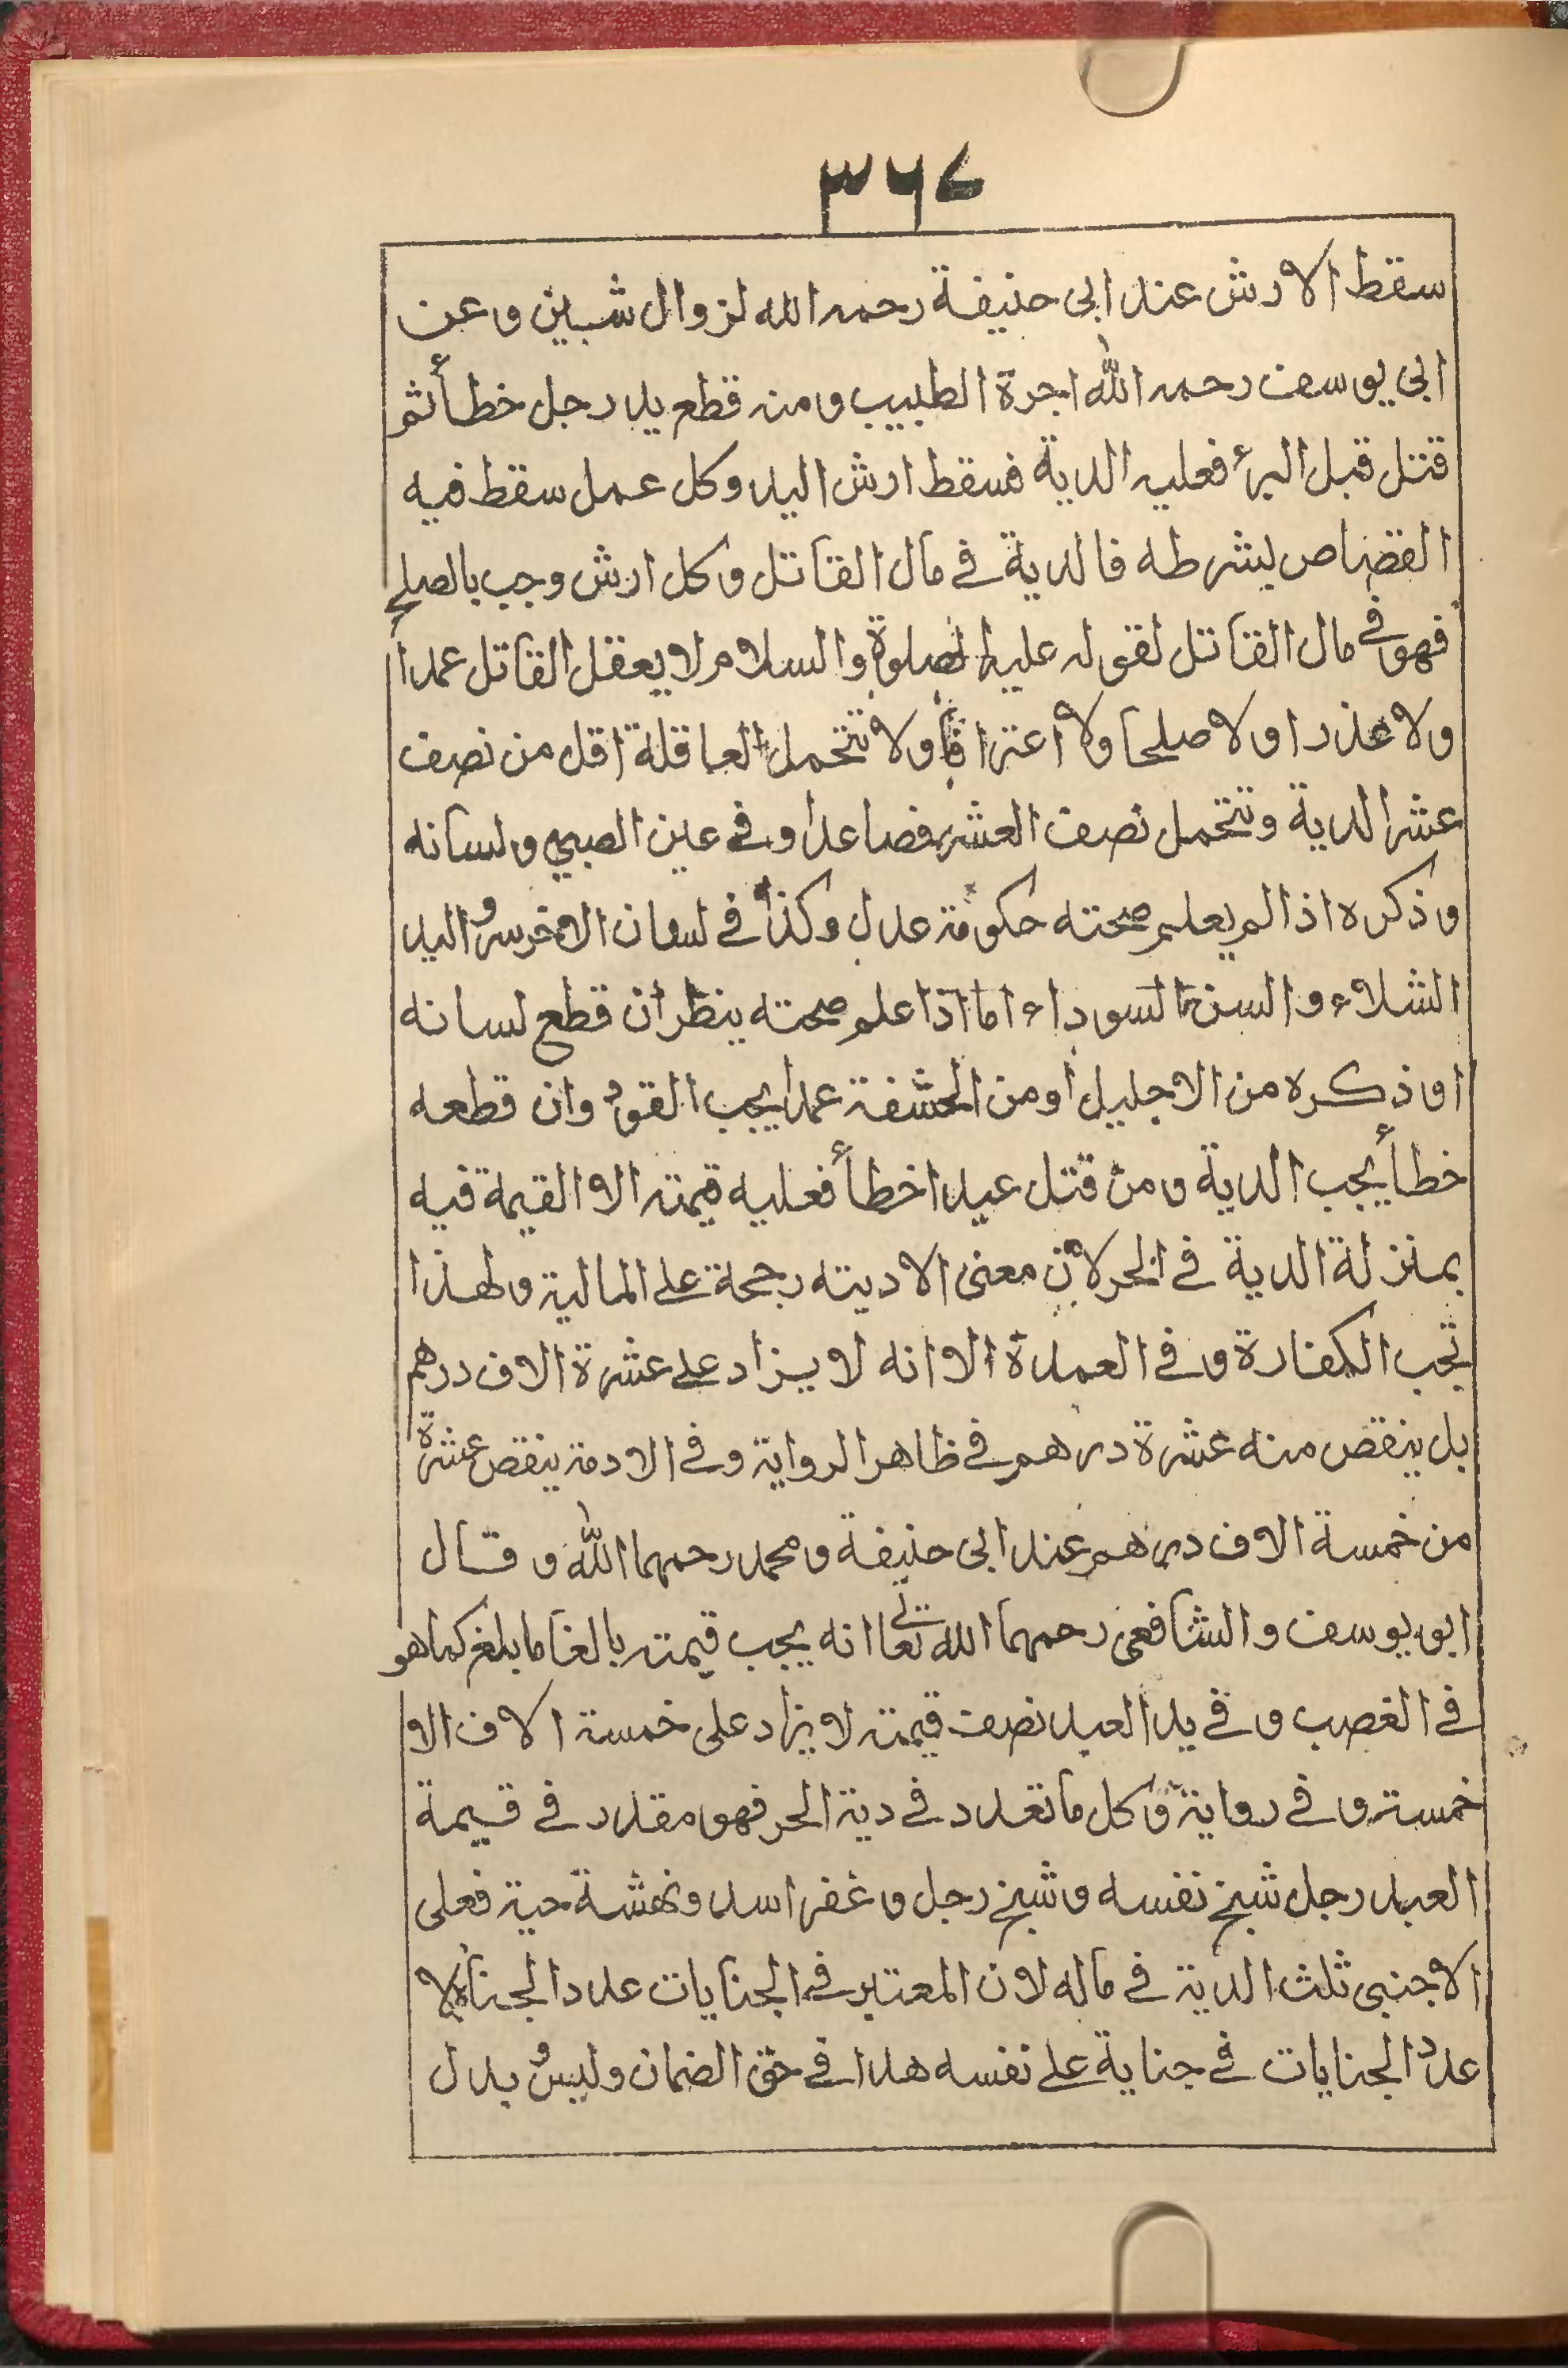 ٣٦٧
سقط الارش عند ابى حنيفة رحمه الله لزوال شين وعن
ابى يوسف رحمه الله اجرة الطبيب ومن قطع يد رجل خطأ ثم
قتل قبل البرء فعليه الدية فسقط ارش اليد وكل عمل سقط فيه
القضاص بشرطه فالدية فى مال القاتل وكل ارش وجب بالصلح
فهو فى مال القاتل لقوله عليه الصلوة والسلام لا يعقل القاتل عمدا
ولا عذرا ولا صلحا ولا اعترافا ولا تتحمل العاقلة اقل من نصف
عشر الدية وتتحمل نصف العشر فصاعدا وفى عين الصبى ولسانه
وذكره اذا لم يعلم صحته حكومة عدل وكذا فى لسان الاخرس واليد
الشلاء والسن السوداء اما اذا علم صحته ينظر ان قطع لسانه
او ذكره من الاجليل او من الحشفة عمدا يجب القود وان قطعه
خطأ يجب الدية ومن قتل عبدا خطأ فعليه قيمته الا القيمة فيه
بمنزلة الدية فى الحر لان معنى الاديته رجحة على المالية ولهذا
تجب الكفارة وفى العمدة الا انه لا يزاد على عشرة الاف درهم
بل ينقص منه عشرة درهم فى ظاهر الرواية وفى الادمة ينقص عشرة
من خمسة الاف درهم عند ابى حنيفة ومحمد رحمهما الله وقال
ابو يوسف والشافعى رحمهما الله تعالى انه يجب قيمته بالغا ما بلغ كما هو
فى الغصب وفى يد العبد نصف قيمته لا يزاد على خمسة الاف الا
خمسة وفى رواية وكل ما تعدد فى دية الحر فهو مقدر فى قيمة
العبد رجل شبخ نفسه وشبخ رجل وغفر اسد ونهشة حية فعلى
الاجنبى ثلث الدية فى ماله لان المعتبر فى الجنايات عدد الجناة لا
عدد الجنايات فى جناية على نفسه هدا فى حق الضمان وليس بدل